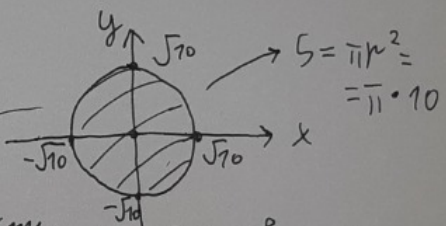 y
√10
S = πr² =
= π • 10
x
-√10
√10
-√10